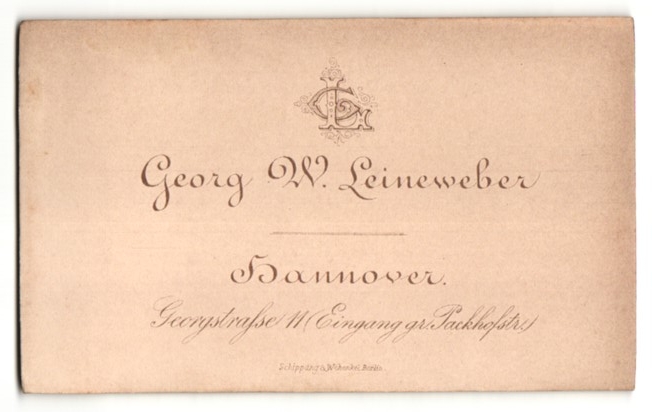 GL
Georg W. Leineweber
Hannover.
Georgstraſse 11 (Eingang gr. Packhofstr.)
Schippang & Wehenkel, Berlin.